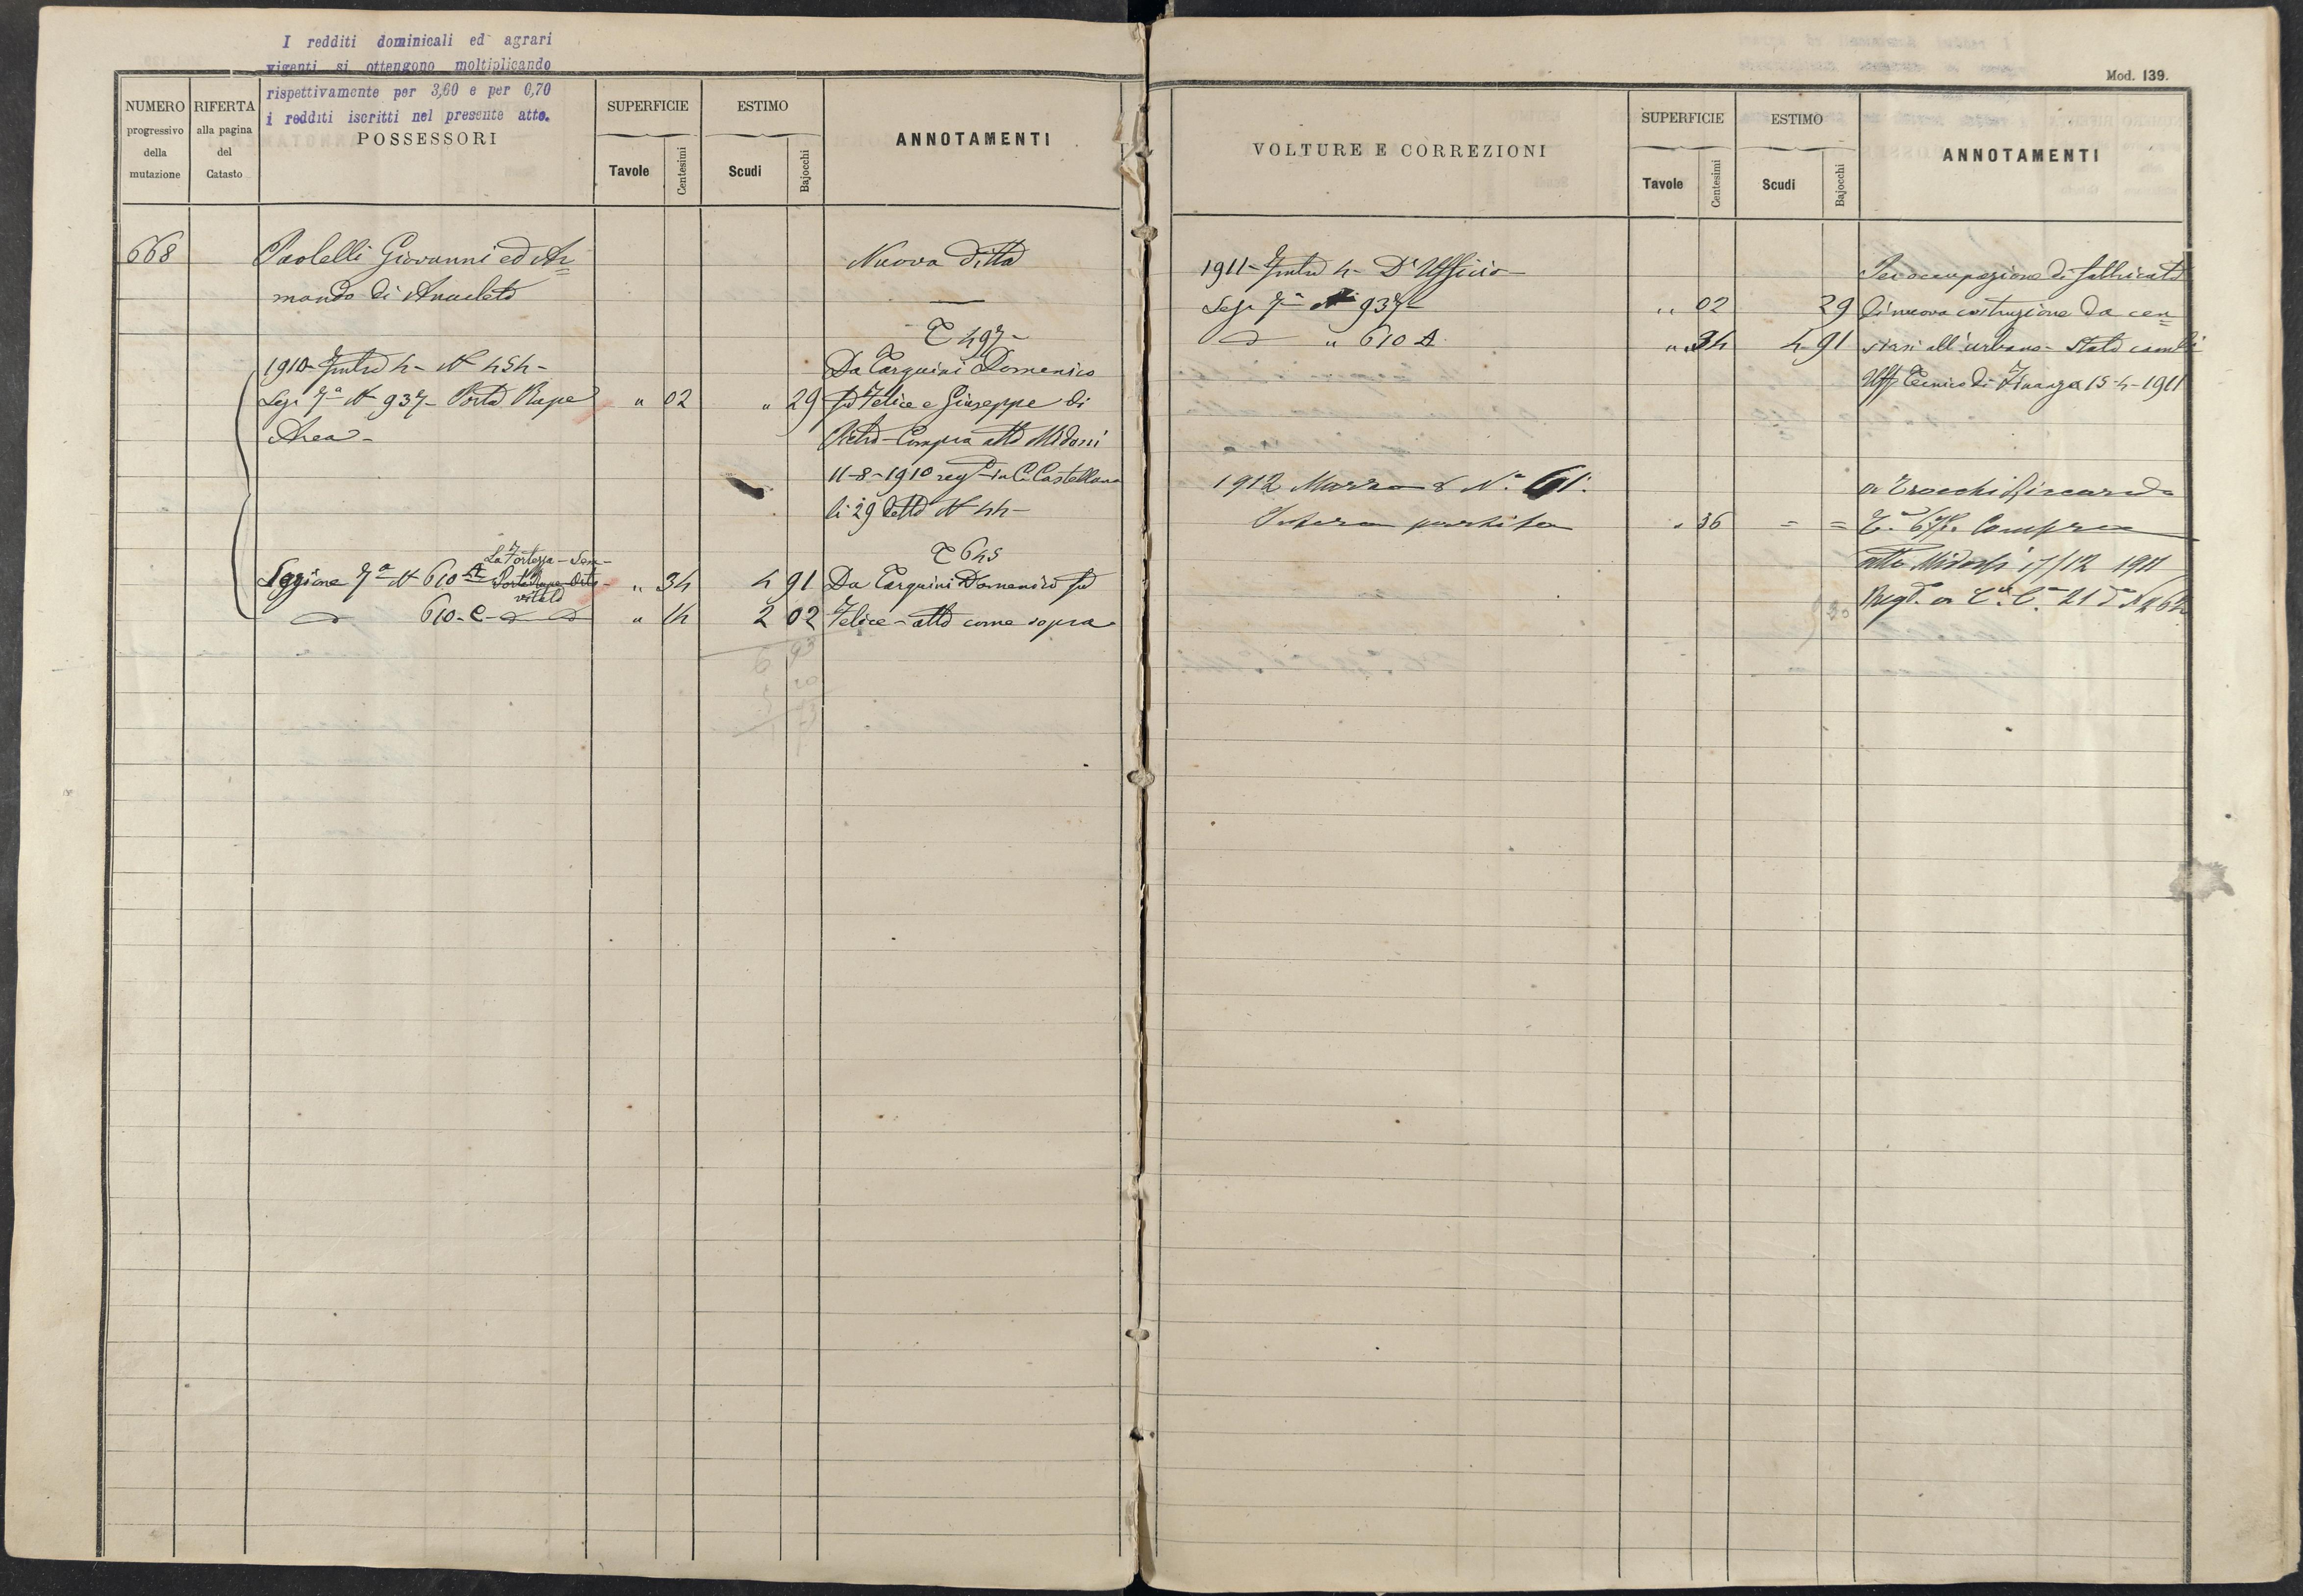 I redditi dominicali ed agrari
vigenti si ottengono moltiplicando
rispettivamente per 3,60 e per 0,70
i redditi iscritti nel presente atto.
NUMERO progressivo della mutazione
RIFERTA alla pagina del Catasto
POSSESSORI
SUPERFICIE
Tavole
Centesimi
ESTIMO
Scudi
Bajocchi
ANNOTAMENTI
668 Paolelli Giovanni ed Ar=
mando di Anacleto
Nuova Ditta
T 497-
1910- 4- N 454-
Da Tarquini Domenico
Sez. 7ª N 937- Porta Rupe " 02 " 29 fu Felice e Giuseppe di
Area-
Pietro- Compra atto Midossi
11-8-1910 regto in C. Castellana
li 29 detto N 44-
T 645
La Fortezza- Sem-
Sezione 7ª N 610 A Porta Rupe Orto - " 34 4 91 Da Tarquini Domenico fu
vitato
610-C- " 14 2 02 Felice- atto come sopra
6 93
Mod. 139.
VOLTURE E CORREZIONI
SUPERFICIE
Tavole
Centesimi
ESTIMO
Scudi
Bajocchi
ANNOTAMENTI
1911- 4- D'Ufficio
Per occupazione di fabbricato
Sez. 7ª N 937- " 02 29 di nuova costruzione da cen=
" 610 A " 34 4 91 sirsi all'urbano- Stato
Uff. Tecnico di Finanza 15-4-1911
1912 Marzo 8 N.° 61.
a Trocchi Riccardo
Intera partita " 36 = = Compra
atto Midossi 17/12 1911
Regto a C.ta C.na 21